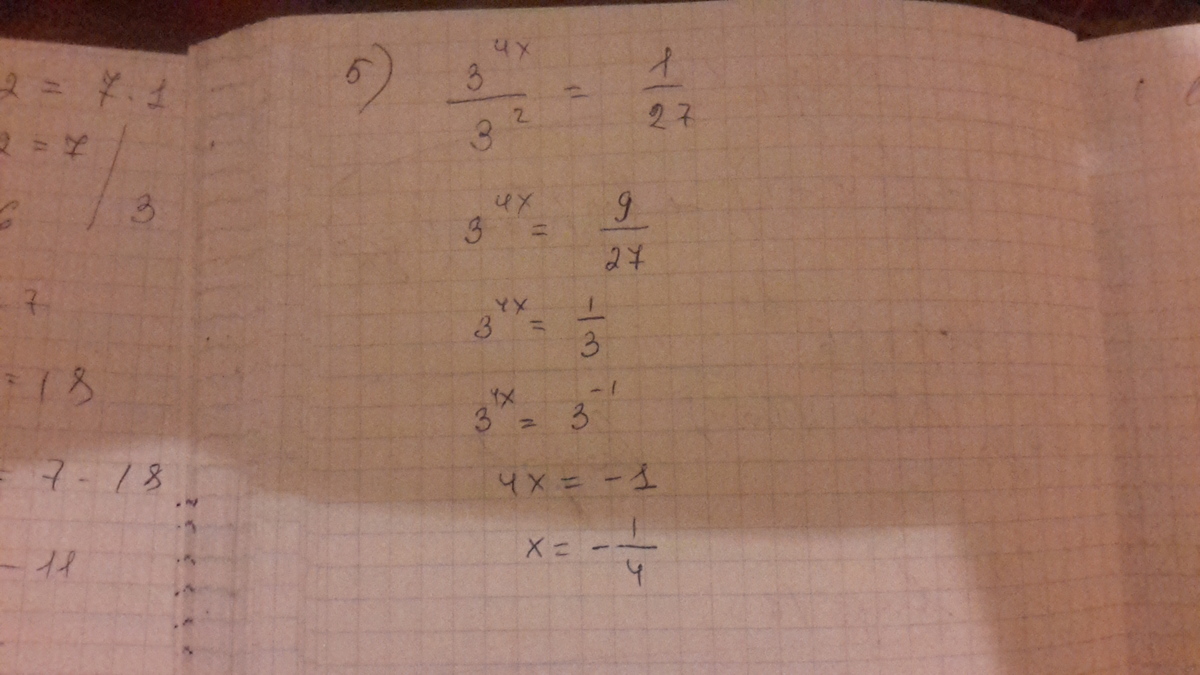 2 = 7 · 1
2 = 7
3
7
= 18
= 7 - 18
- 11
5) 3^4x / 3^2 = 1/27
3^4x = 9/27
3^4x = 1/3
3^4x = 3^-1
4x = -1
x = -1/4